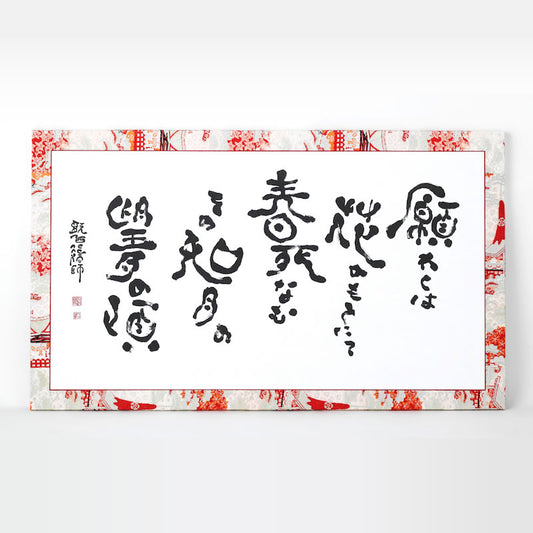 願わくは
花のもとにて
春死なむ
その如月の
望月の頃